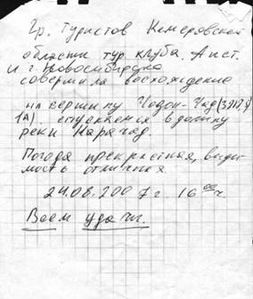 Гр. туристов Кемеровской
области тур. клуба. Аист.
и г. Новосибирска
совершила восхождение
на вершину
1А). спускаемся в долину
реки Нарачад.
Погода прекрастная, види
мость отличная
24.08.2007 г. 16 00 ч.
Всем удачи.